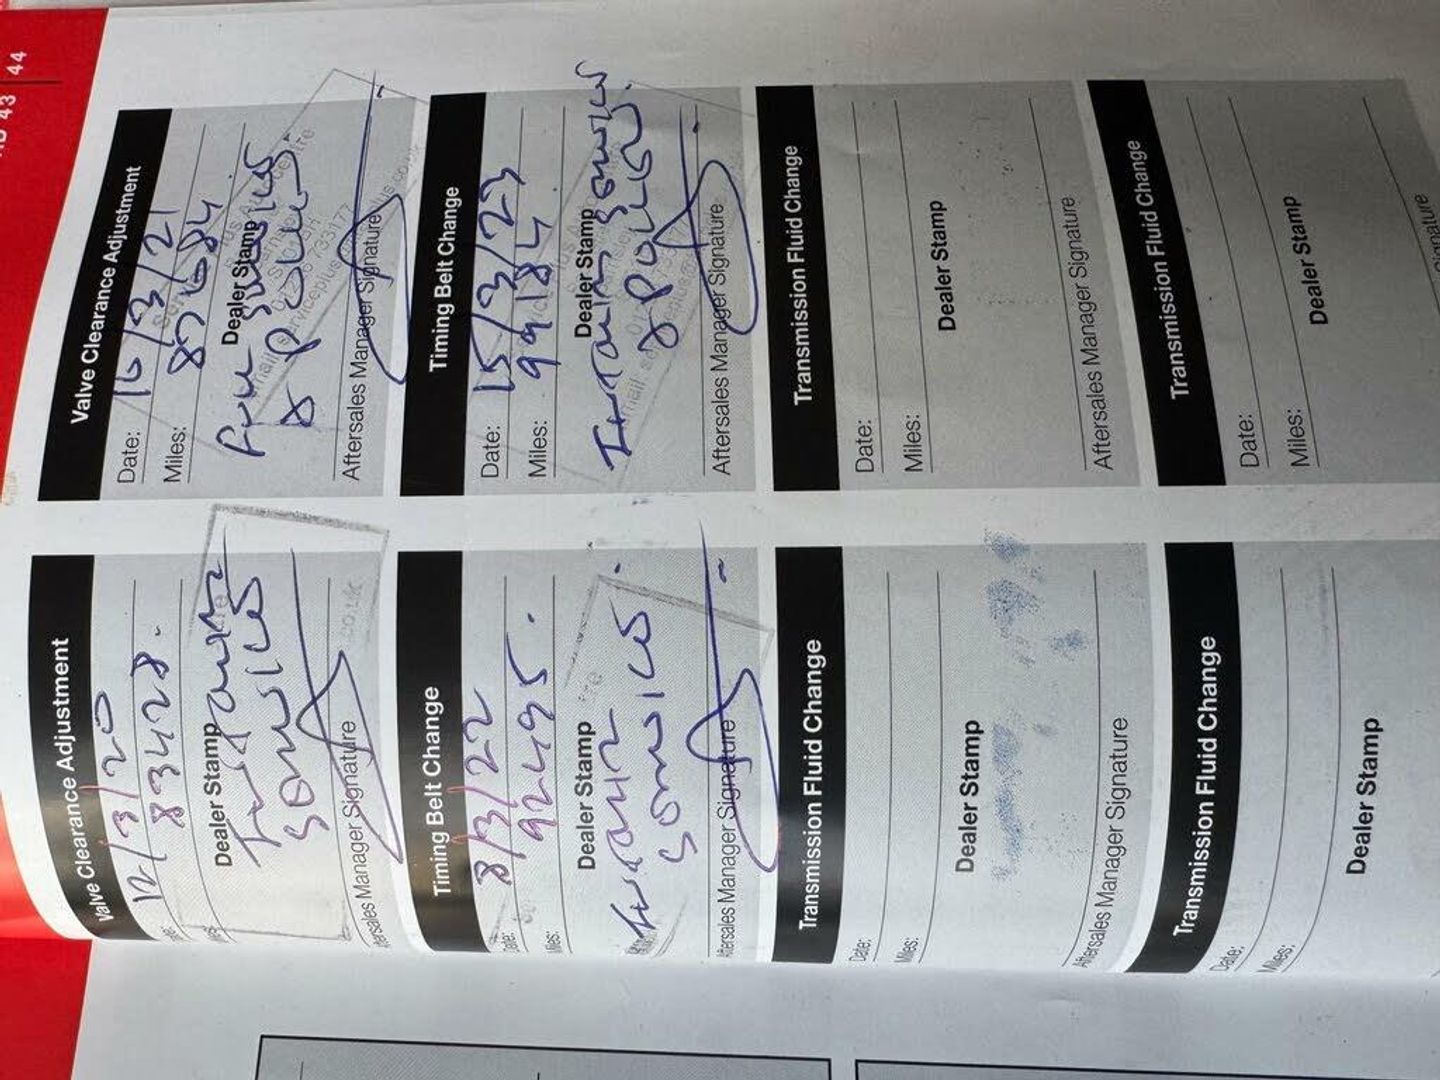 43
44
Valve Clearance Adjustment
Date: 12/3/20
Miles: 83428.
Dealer Stamp
Service
Aftersales Manager Signature
Valve Clearance Adjustment
Date: 16/3/21
Miles: 87684
Dealer Stamp
Full
Aftersales Manager Signature
Timing Belt Change
Date: 8/3/22
Miles: 92495.
Dealer Stamp
Service.
Aftersales Manager Signature
Timing Belt Change
Date: 15/3/23
Miles: 99184
Dealer Stamp
Aftersales Manager Signature
Transmission Fluid Change
Date:
Miles:
Dealer Stamp
Aftersales Manager Signature
Transmission Fluid Change
Date:
Miles:
Dealer Stamp
Aftersales Manager Signature
Transmission Fluid Change
Date:
Miles:
Dealer Stamp
Transmission Fluid Change
Date:
Miles:
Dealer Stamp
Signature